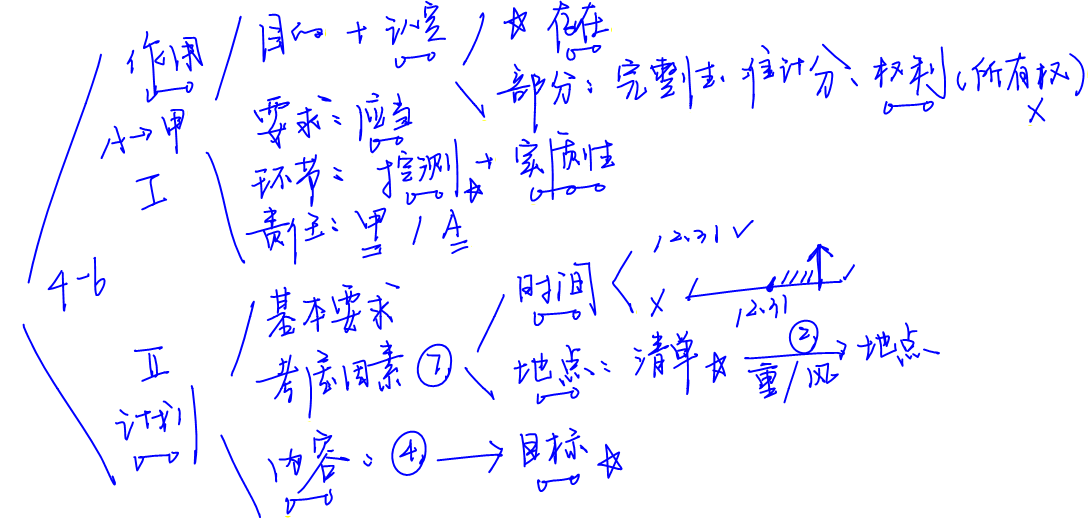 4-6
I
作用
A→甲
目的 + 认定
☆ 存在
部分：完整性、准计分、权利(所有权)
×
要求：应当
环节：控测☆ + 实质性
责任：甲 / A
II
计划
基本要求
考虑因素 ⑦
时间
12.31 ✓
×
12.31
✓
地点：清单☆ ② 重/风 → 地点
内容：④ → 目标 ☆